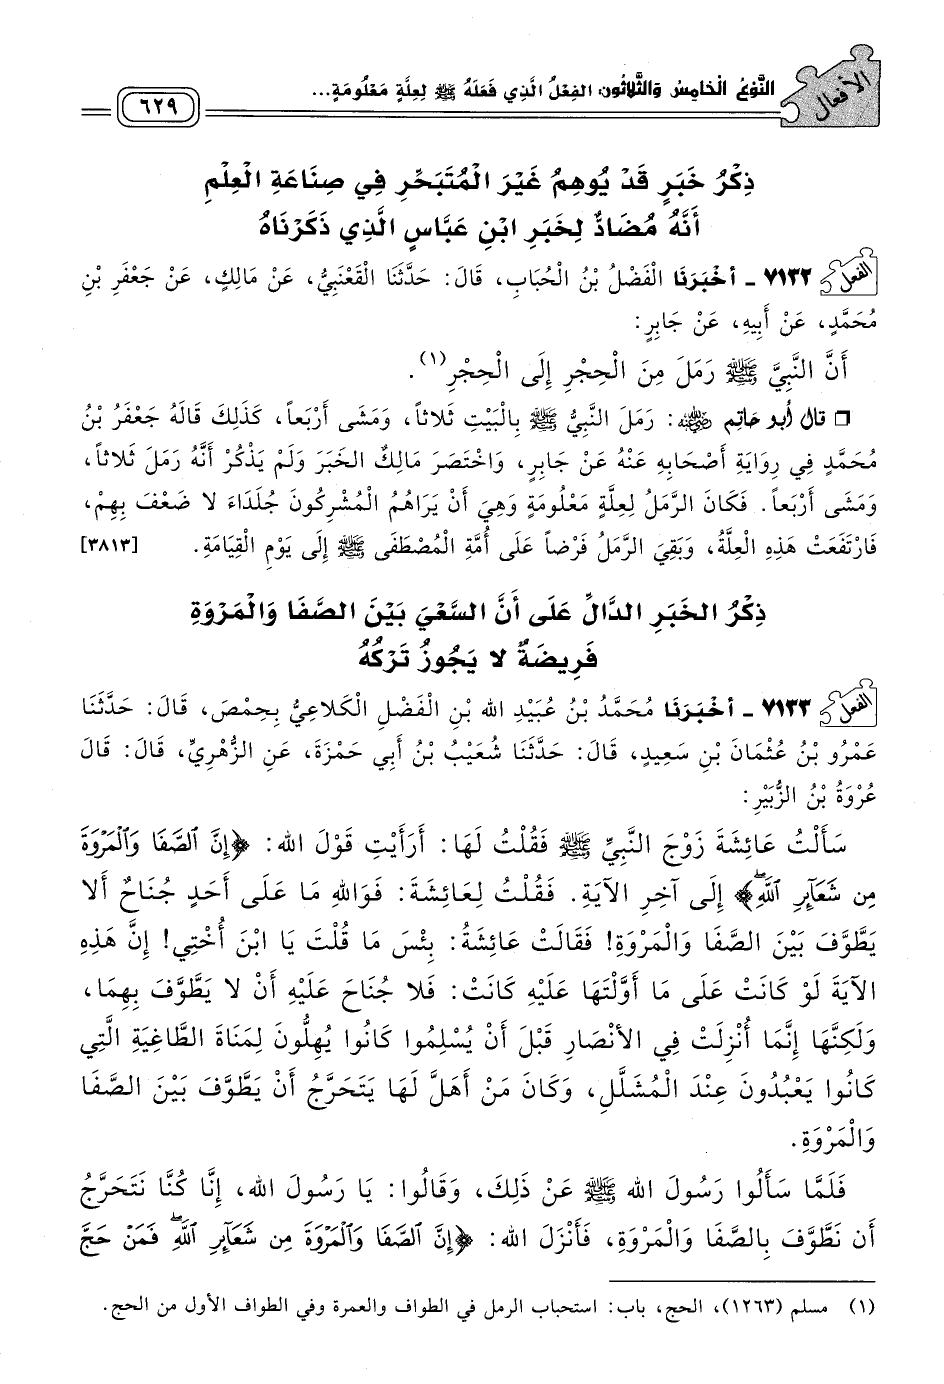 الأفعال
النَّوْعُ الْخَامِسُ وَالثَّلَاثُونَ: الفِعْلُ الَّذِي فَعَلَهُ ﷺ لِعِلَّةٍ مَعْلُومَةٍ...
٦٢٩
ذِكْرُ خَبَرٍ قَدْ يُوهِمُ غَيْرَ الْمُتَبَحِّرِ فِي صِنَاعَةِ الْعِلْمِ
أَنَّهُ مُضَادٌّ لِخَبَرِ ابْنِ عَبَّاسٍ الَّذِي ذَكَرْنَاهُ
الفعل ٧١٣٢ - أَخْبَرَنَا الْفَضْلُ بْنُ الْحُبَابِ، قَالَ: حَدَّثَنَا الْقَعْنَبِيُّ، عَنْ مَالِكٍ، عَنْ جَعْفَرِ بْنِ
مُحَمَّدٍ، عَنْ أَبِيهِ، عَنْ جَابِرٍ:
أَنَّ النَّبِيَّ ﷺ رَمَلَ مِنَ الْحِجْرِ إِلَى الْحِجْرِ(١).
❑ قال أبو حاتِم ﵁: رَمَلَ النَّبِيُّ ﷺ بِالْبَيْتِ ثَلاثاً، وَمَشَى أَرْبَعاً، كَذَلِكَ قَالَهُ جَعْفَرُ بْنُ
مُحَمَّدٍ فِي رِوَايَةِ أَصْحَابِهِ عَنْهُ عَنْ جَابِرٍ، وَاخْتَصَرَ مَالِكٌ الخَبَرَ وَلَمْ يَذْكُرْ أَنَّهُ رَمَلَ ثَلاثاً،
وَمَشَى أَرْبَعاً. فَكَانَ الرَّمَلُ لِعِلَّةٍ مَعْلُومَةٍ وَهِيَ أَنْ يَرَاهُمُ الْمُشْرِكُونَ جُلَدَاءَ لا ضَعْفَ بِهِمْ،
فَارْتَفَعَتْ هَذِهِ الْعِلَّةُ، وَبَقِيَ الرَّمَلُ فَرْضاً عَلَى أُمَّةِ الْمُصْطَفَى ﷺ إِلَى يَوْمِ الْقِيَامَةِ. [٣٨١٣]
ذِكْرُ الخَبَرِ الدَّالِّ عَلَى أَنَّ السَّعْيَ بَيْنَ الصَّفَا وَالْمَرْوَةِ
فَرِيضَةٌ لا يَجُوزُ تَرْكُهُ
الفعل ٧١٣٣ - أَخْبَرَنَا مُحَمَّدُ بْنُ عُبَيْدِ الله بْنِ الْفَضْلِ الْكَلاعِيُّ بِحِمْصَ، قَالَ: حَدَّثَنَا
عَمْرُو بْنُ عُثْمَانَ بْنِ سَعِيدٍ، قَالَ: حَدَّثَنَا شُعَيْبُ بْنُ أَبِي حَمْزَةَ، عَنِ الزُّهْرِيِّ، قَالَ: قَالَ
عُرْوَةُ بْنُ الزُّبَيْرِ:
سَأَلْتُ عَائِشَةَ زَوْجَ النَّبِيِّ ﷺ فَقُلْتُ لَهَا: أَرَأَيْتِ قَوْلَ الله: ﴿إِنَّ ٱلصَّفَا وَٱلْمَرْوَةَ
مِن شَعَآئِرِ ٱللَّهِۖ﴾ إِلَى آخِرِ الآيَةِ. فَقُلْتُ لِعَائِشَةَ: فَوَاللهِ مَا عَلَى أَحَدٍ جُنَاحٌ أَلا
يَطَّوَّفَ بَيْنَ الصَّفَا وَالْمَرْوَةِ! فَقَالَتْ عَائِشَةُ: بِئْسَ مَا قُلْتَ يَا ابْنَ أُخْتِي! إِنَّ هَذِهِ
الآيَةَ لَوْ كَانَتْ عَلَى مَا أَوَّلْتَهَا عَلَيْهِ كَانَتْ: فَلا جُنَاحَ عَلَيْهِ أَنْ لا يَطَّوَّفَ بِهِمَا،
وَلَكِنَّهَا إِنَّمَا أُنْزِلَتْ فِي الأَنْصَارِ قَبْلَ أَنْ يُسْلِمُوا كَانُوا يُهِلُّونَ لِمَنَاةَ الطَّاغِيَةِ الَّتِي
كَانُوا يَعْبُدُونَ عِنْدَ الْمُشَلَّلِ، وَكَانَ مَنْ أَهَلَّ لَهَا يَتَحَرَّجُ أَنْ يَطَّوَّفَ بَيْنَ الصَّفَا
وَالْمَرْوَةِ.
فَلَمَّا سَأَلُوا رَسُولَ الله ﷺ عَنْ ذَلِكَ، وَقَالُوا: يَا رَسُولَ الله، إِنَّا كُنَّا نَتَحَرَّجُ
أَن نَطَّوَّفَ بِالصَّفَا وَالْمَرْوَةِ، فَأَنْزَلَ الله: ﴿إِنَّ ٱلصَّفَا وَٱلْمَرْوَةَ مِن شَعَآئِرِ ٱللَّهِۖ فَمَنْ حَجَّ
(١) مسلم (١٢٦٣)، الحج، باب: استحباب الرمل في الطواف والعمرة وفي الطواف الأول من الحج.